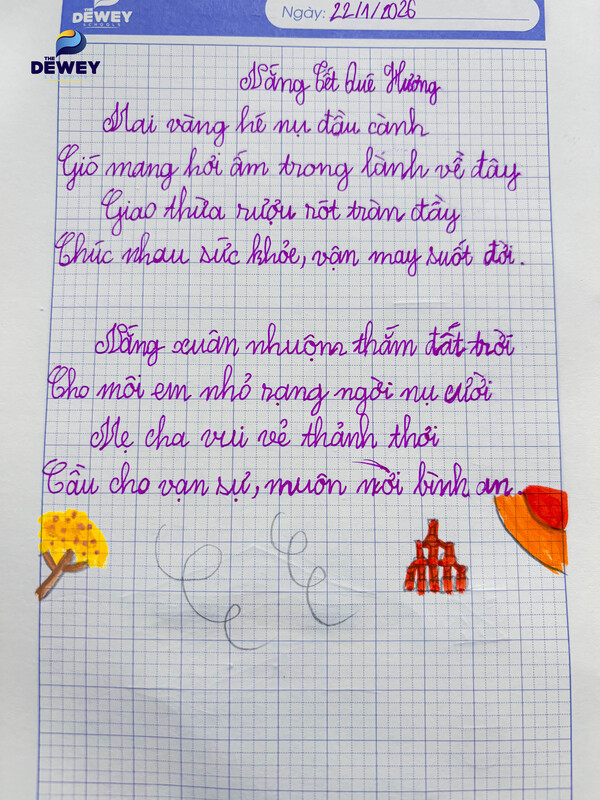 THE
DEWEY
SCHOOLS
Ngày: 22/1/2026
THE
DEWEY
Nắng Tết Quê Hương
Mai vàng hé nụ đầu cành
Gió mang hơi ấm trong lành về đây
Giao thừa rượu rót tràn đầy
Chúc nhau sức khỏe, vận may suốt đời.
Nắng xuân nhuộm thắm đất trời
Cho môi em nhỏ rạng ngời nụ cười
Mẹ cha vui vẻ thảnh thơi
Cầu cho vạn sự, muôn nơi bình an.